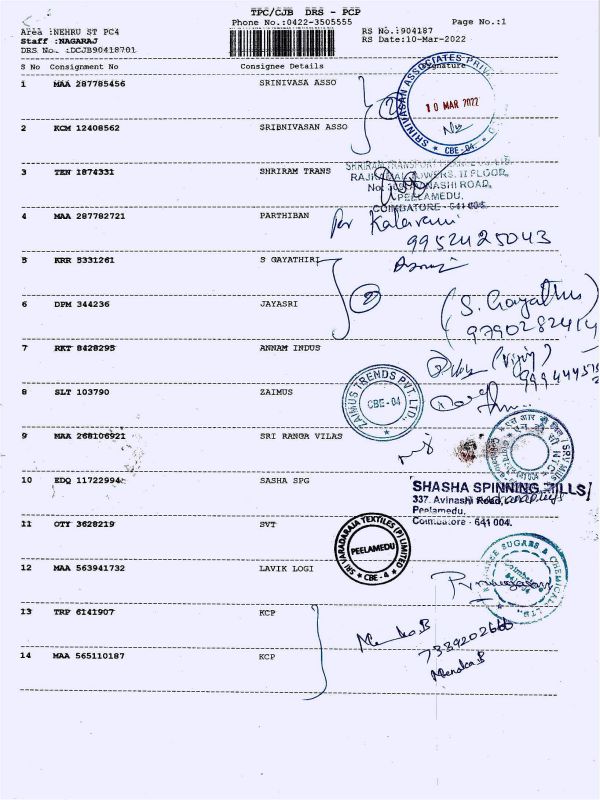 TPC/CJB DRS - PCP
Phone No.:0422-3505555 Page No.:1
Area :NEHRU ST PC4 RS No.:904187
Staff :NAGARAJ RS Date:10-Mar-2022
DRS No. :DCJB90418701
S No Consignment No Consignee Details Signature
1 MAA 287785456 SRINIVASA ASSO
SRINIVASAN ASSOCIATES
10 MAR 2022
CBE-04
2 KCM 12408562 SRIBNIVASAN ASSO
3 TEN 1874331 SHRIRAM TRANS
II FLOOR,
AVINASHI ROAD,
PEELAMEDU,
COIMBATORE - 641 004.
4 MAA 287782721 PARTHIBAN
Kalavani
9952425043
5 KRR 5331261 S GAYATHIRI
6 DPM 344236 JAYASRI
2
(S. Gayathri)
9790282414
7 RKT 8428295 ANNAM INDUS
8 SLT 103790 ZAIMUS
ZAIMUS TRENDS PVT. LTD.,
CBE-04
9 MAA 268106921 SRI RANGA VILAS
10 EDQ 11722994 SASHA SPG
SHASHA SPINNING MILLS
337, Avinashi Road,
Peelamedu,
Coimbatore - 641 004.
11 OTY 3628219 SVT
SRI VARADARAJA TEXTILES (P) LIMITED
PEELAMEDU
CBE - 4
12 MAA 563941732 LAVIK LOGI
SUGARS & CHEMICALS LTD.,
13 TRP 6141907 KCP
Menaka B
7339202666
Menaka B
14 MAA 565110187 KCP